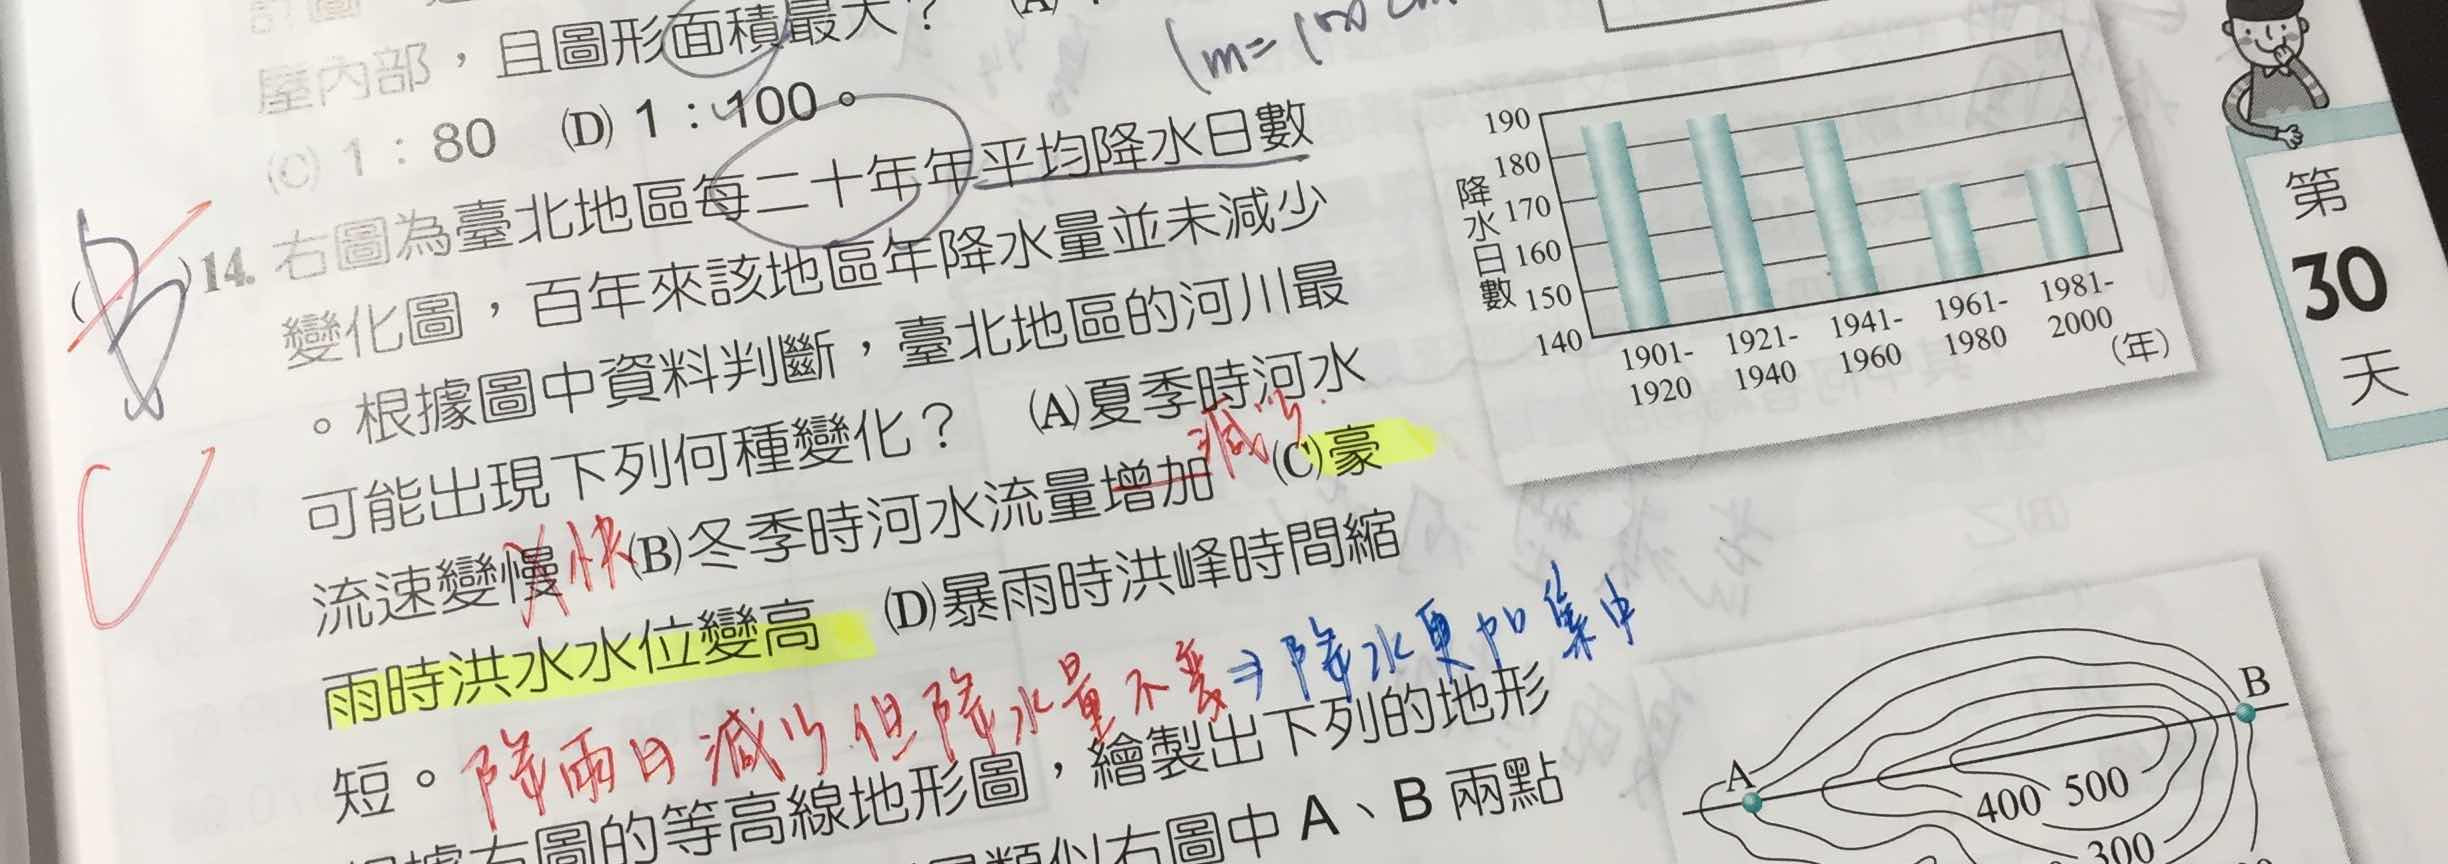 屋內部，且圖形面積最大？ (A)
1m=100cm
(C) 1：80 (D) 1：100。
B
14. 右圖為臺北地區每二十年年平均降水日數
變化圖，百年來該地區年降水量並未減少
。根據圖中資料判斷，臺北地區的河川最
可能出現下列何種變化？ (A)夏季時河水
減少
流速變慢 (B)冬季時河水流量增加 (C)豪
快
雨時洪水水位變高 (D)暴雨時洪峰時間縮
短。
C
降雨日減少但降水量不變⇒降水更加集中
根據右圖的等高線地形圖，繪製出下列的地形
類似右圖中 A、B 兩點
降水日數
190
180
170
160
150
140
1901-1920
1921-1940
1941-1960
1961-1980
1981-2000
(年)
第
30
天
A
B
400
500
300